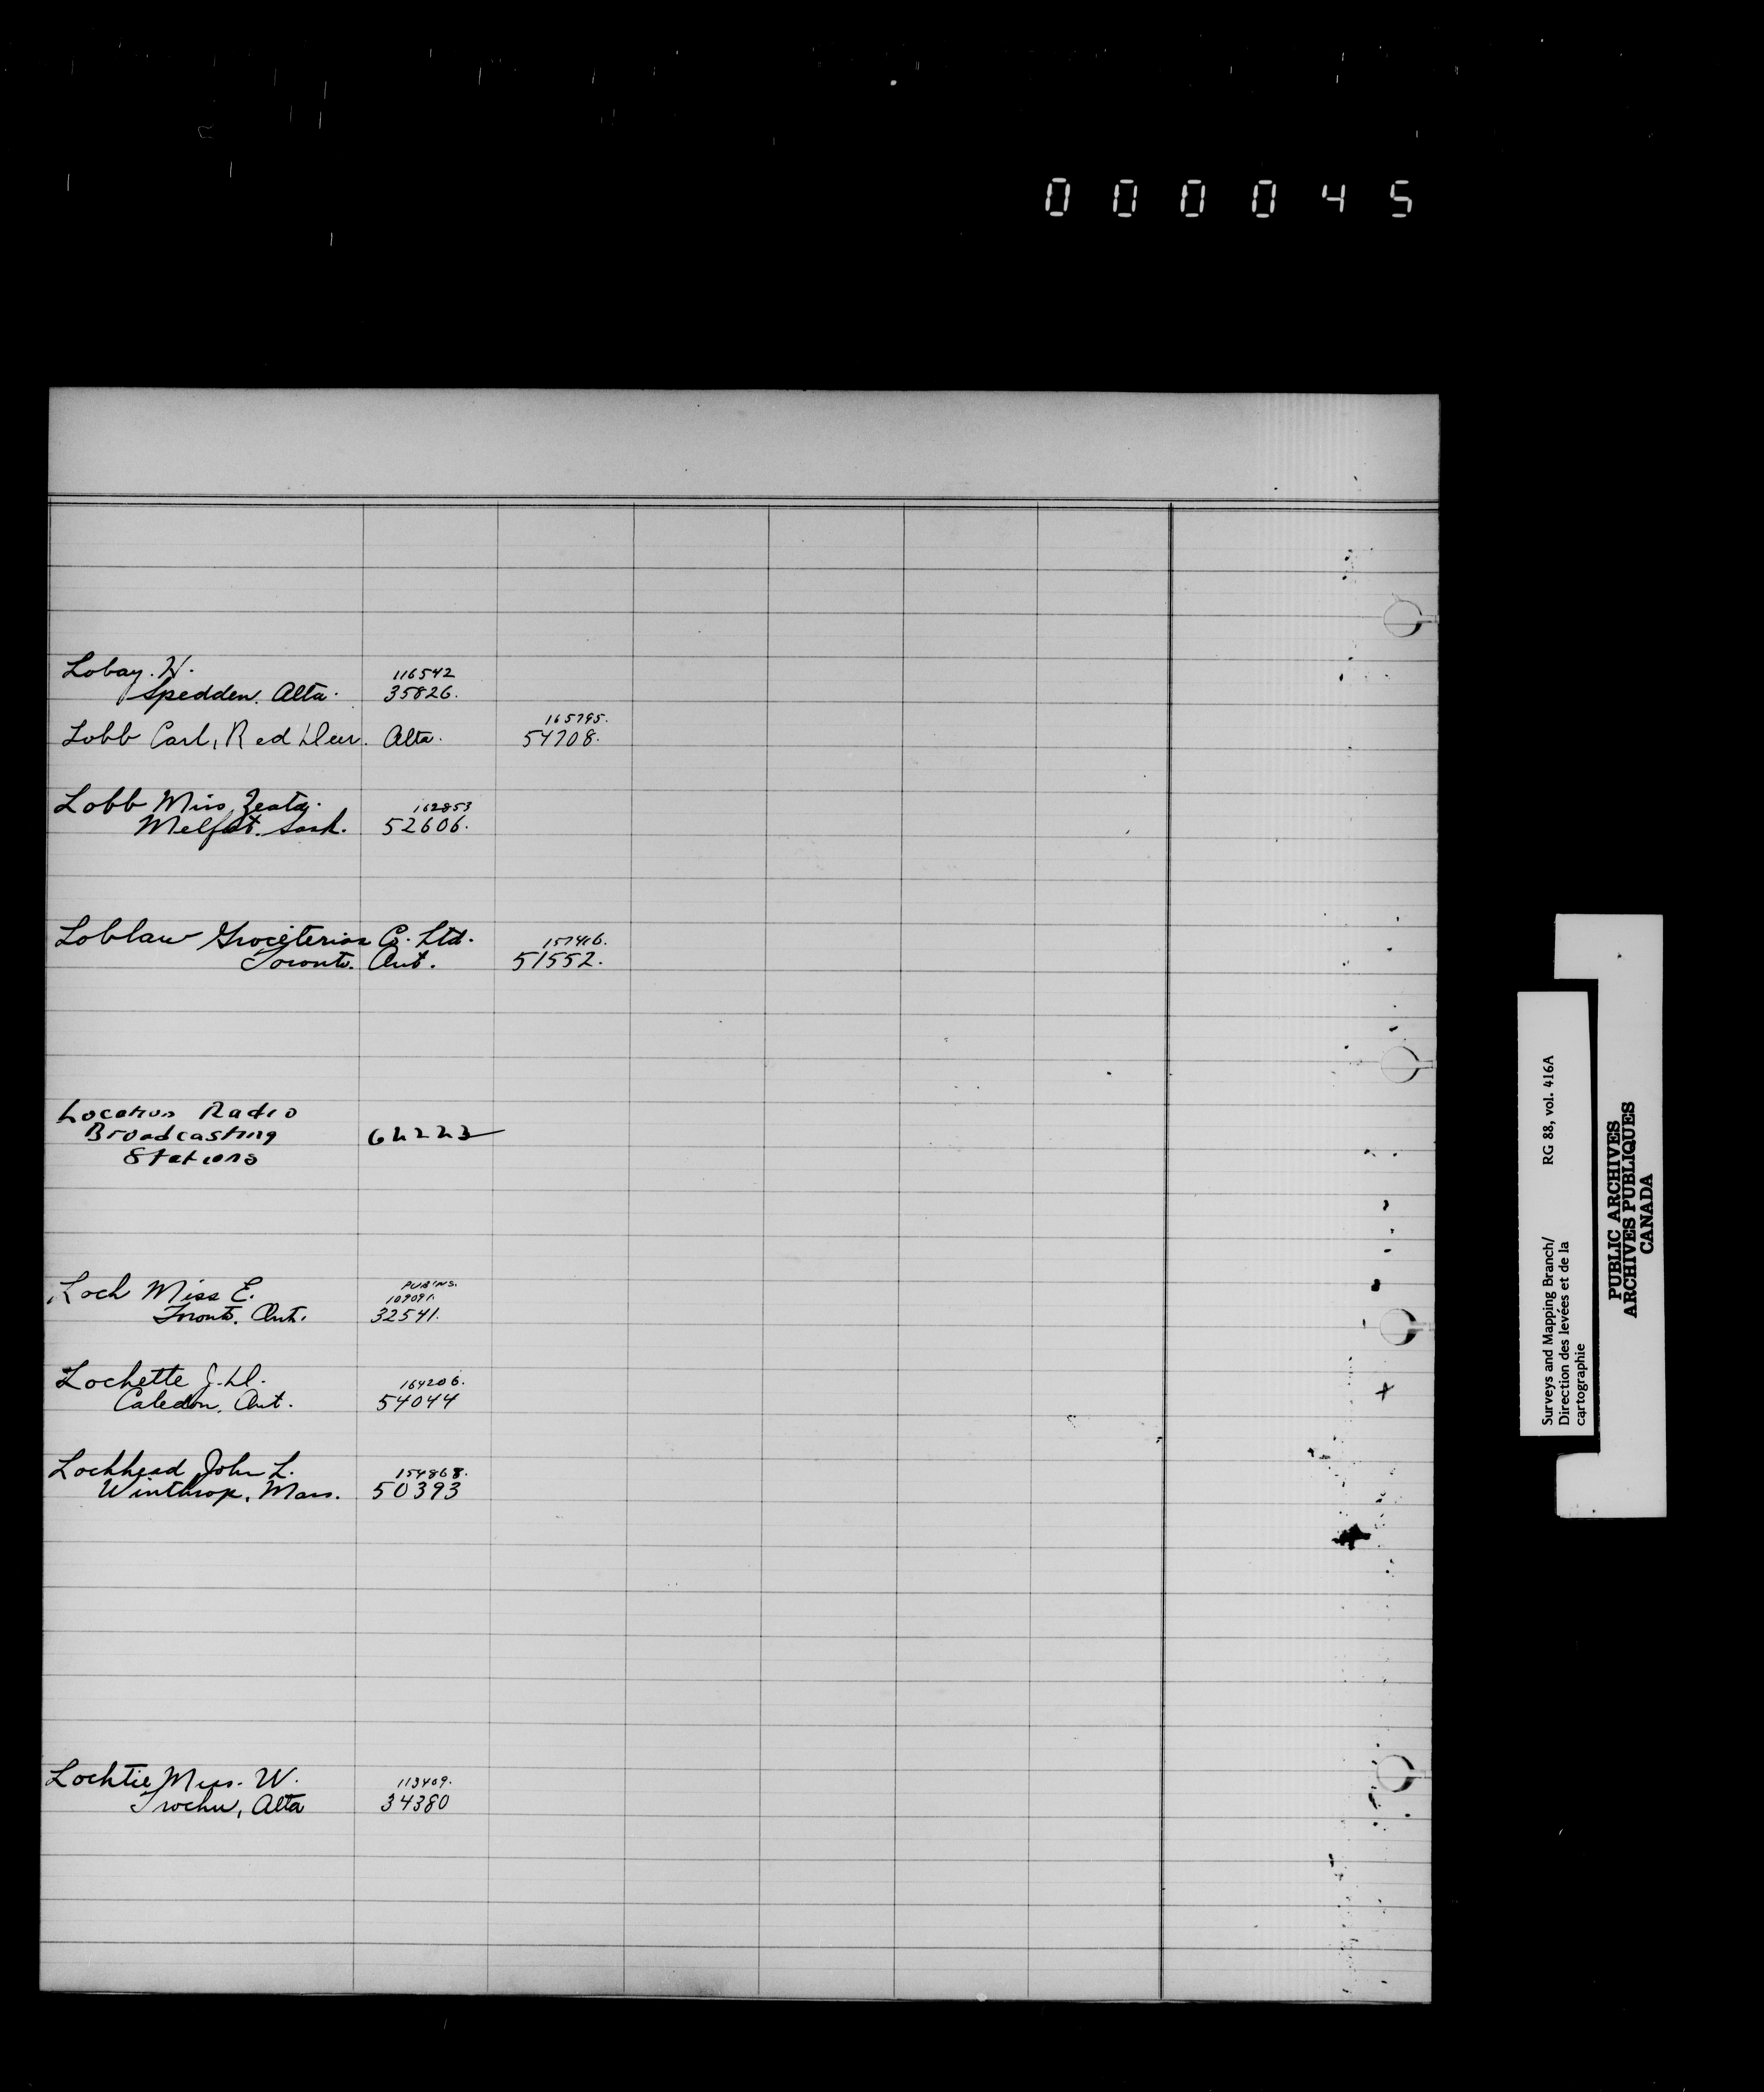 000045
Lobay. H. 116542
Spedden. Alta. 35826.
165795.
Lobb Carl, Red Deer. Alta. 54708.
Lobb Miss 162853
Melfort. Sask. 52606.
Loblaw Groceterias Co. Ltd. 157416.
Toronto. Ont. 51552.
Location Radio
Broadcasting 62223
Stations
Loch Miss E. PUB'NS.
109091.
Toronto. Ont. 32541.
Lochette J. D. 164206.
Caledon, Ont. 54044
Lochhead John L. 154868.
Winthrop, Mass. 50393
Lochtie W. 113409.
Trochu, Alta 34380
Surveys and Mapping Branch/ RG 88, vol. 416A
Direction des levées et de la
cartographie
PUBLIC ARCHIVES
ARCHIVES PUBLIQUES
CANADA